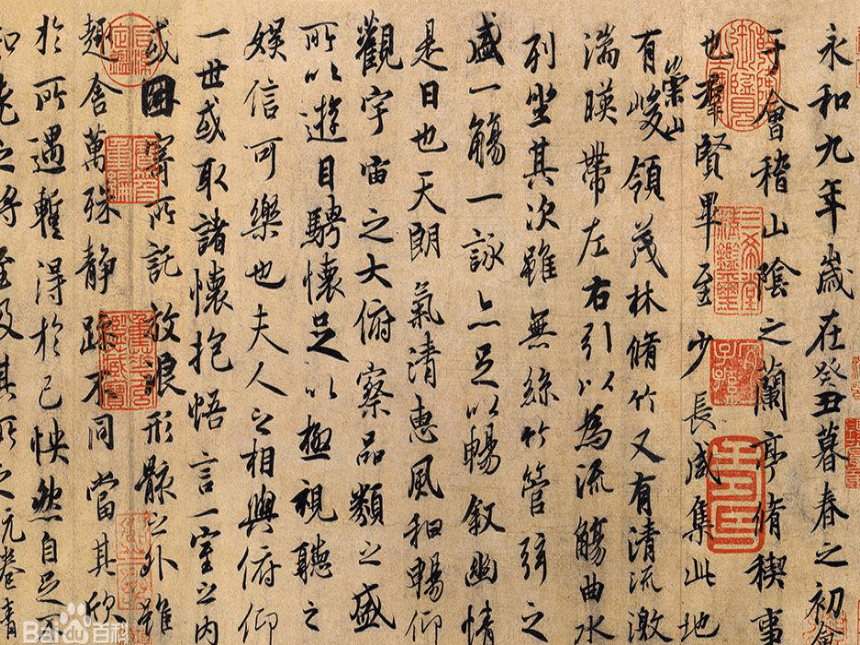 永和九年歲在癸丑暮春之初會
于會稽山陰之蘭亭脩稧事
也羣賢畢至少長咸集此地
有崇山峻領茂林脩竹又有清流激
湍暎帶左右引以為流觴曲水
列坐其次雖無絲竹管弦之
盛一觴一詠亦足以暢敘幽情
是日也天朗氣清惠風和暢仰
觀宇宙之大俯察品類之盛
所以遊目騁懷足以極視聽之
娛信可樂也夫人之相與俯仰
一世或取諸懷抱悟言一室之內
或因寄所託放浪形骸之外雖
趣舍萬殊靜躁不同當其欣
於所遇蹔得於己怏然自足不
知老之將至及其所之既惓情
Baidu百科